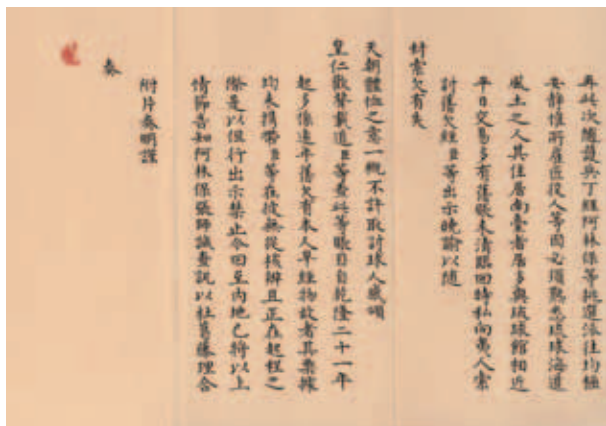 再此次隨護兵丁經阿林保等挑選派往均極
安靜惟所雇匠役人等因必須熟悉琉球海道
風土之人其住居南臺者居多與琉球館相近
平日交易多有舊賬未清跟回時私向夷人索
討舊欠經臣等出示曉諭以隨
封索欠有失
天朝體恤之意一概不許取討球人感頌
皇仁歡聲載道臣等查此等賬目自乾隆二十一年
起多係遠年舊欠有本人早經物故者其票據
均未攜帶臣等在彼無從核辦且正在起程之
際是以但行出示禁止今回至內地已將以上
情節告知阿林保張師誠查訊以杜葛藤理合
附片奏明謹
奏